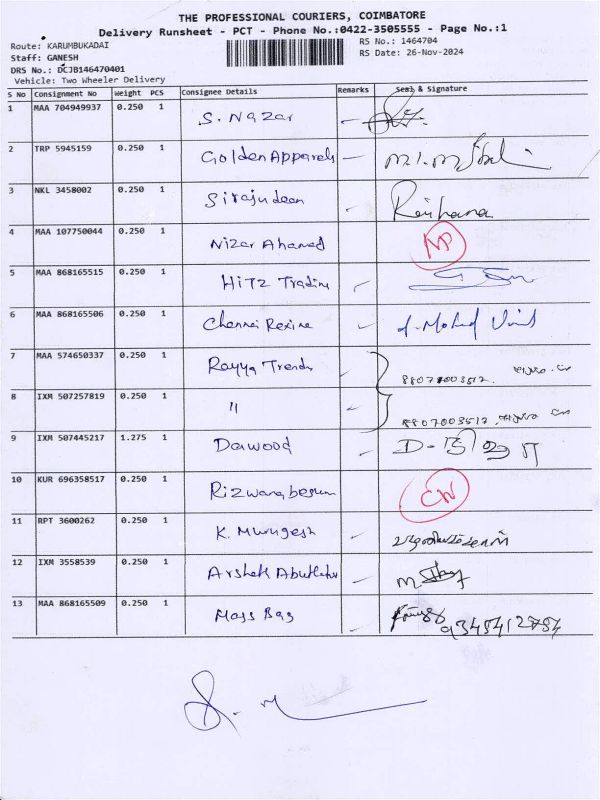 THE PROFESSIONAL COURIERS, COIMBATORE
Delivery Runsheet - PCT - Phone No.:0422-3505555 - Page No.:1
Route: KARUMBUKADAI RS No.: 1464704
Staff: GANESH RS Date: 26-Nov-2024
DRS No.: DCJB146470401
Vehicle: Two Wheeler Delivery
S No Consignment No Weight PCS Consignee Details Remarks Seal & Signature
1 MAA 704949937 0.250 1 S. Nazar
2 TRP 5945159 0.250 1 Golden Apparels
3 NKL 3458002 0.250 1 Sirajudeen Raihana
4 MAA 107750044 0.250 1 Nizar Ahamed
5 MAA 868165515 0.250 1 HiTZ Trading
6 MAA 868165506 0.250 1 Chennai Rexine
7 MAA 574650337 0.250 1 Rayya Trends 8807003512.
8 IXM 507257819 0.250 1 " 8807003512.
9 IXM 507445217 1.275 1 Dawood
10 KUR 696358517 0.250 1 CN
11 RPT 3600262 0.250 1 K. Murugesh
12 IXM 3558539 0.250 1
13 MAA 868165509 0.250 1 Mass Bag 9345412784